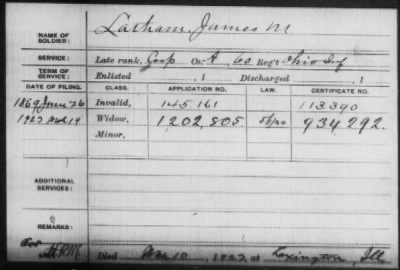 NAME OF SOLDIER: Latham, James M
SERVICE: Late rank, Corp Co. A, 60 Reg't Ohio Inf
TERM OF SERVICE: Enlisted , 1 Discharged , 1
DATE OF FILING. CLASS. APPLICATION NO. LAW. CERTIFICATE NO.
1869 June 26 Invalid, 145.161 113390
1923 19 Widow, 1202,805 934292.
Minor,
ADDITIONAL SERVICES:
REMARKS:
Died 10, 1922 at Lexington, Ill